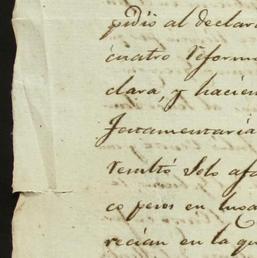 pidio al declara
cuatro reform
clara, y hacien
Jestamentaria
resultó solo afa
co pesos en luga
recian en la qu